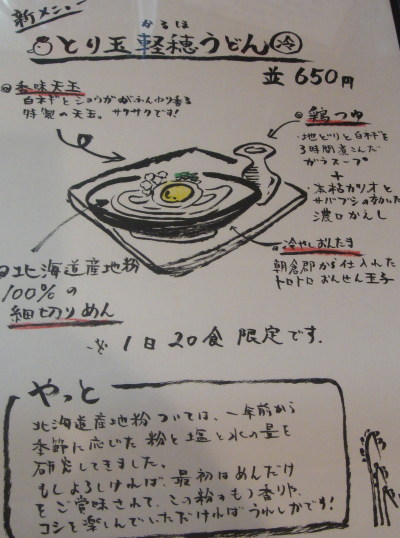 新メニュー
かるほ
とり玉軽穂うどん冷
並 650円
香味天玉
白ネギとショウガがふんわり香る
特製の天玉。サクサクです!
鶏つゆ
・地どりと白ネギを
3時間煮こんだ
がらスープ
+
・本枯カツオと
サバブシの効いた
濃口かえし
冷やしおんたま
朝倉郡から仕入れた
トロトロおんせん玉子
北海道産地粉
100%の
細切りめん
1日20食限定です.
やっと
北海道産地粉ついては、一年前から
季節に応じた粉と塩と水の量を
研究してきました。
もしよろしければ、最初はめんだけ
をご賞味されて、この粉のもつ香りや、
コシを楽しんでいただければうれしかです!